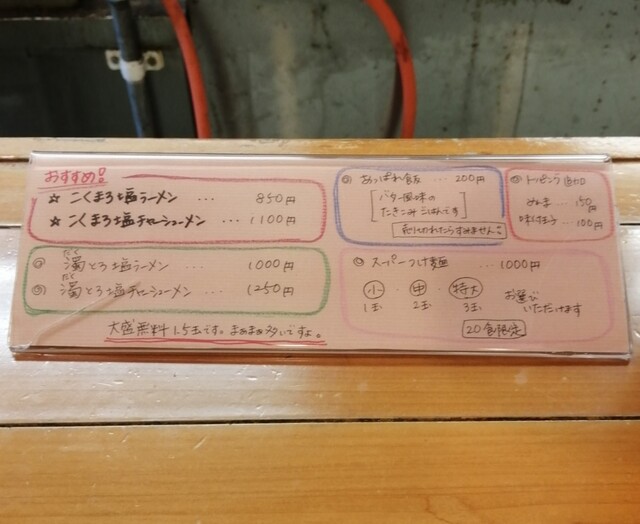 おすすめ!!
☆ こくまろ塩ラーメン ・・・ 850円
☆ こくまろ塩チャーシューメン ・・ 1100円
◎ 濁とろ塩ラーメン ・・・ 1000円
だく
◎ 濁とろ塩チャーシューメン ・・・ 1250円
だく
大盛無料 1.5玉です。まぁまぁ多いですよ。
◎ あっぱれ飯 ・・・ 200円
バター風味の
たきこみごはんです
売り切れたらすみません。
◎ トッピング
・・・ 150円
味付玉子 ・・・ 100円
◎ スーパーつけ麺 ・・・ 1000円
小 ・ 中 ・ 特大
1玉 2玉 3玉
お選び
いただけます
20食限定